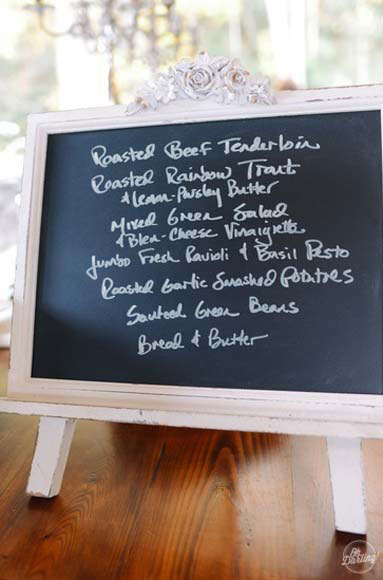 Roasted Beef Tenderloin
Roasted Rainbow Trout
& Lemon-Parsley Butter
Mixed Green Salad
& Bleu-Cheese Vinaigrette
Jumbo Fresh Ravioli & Basil Pesto
Roasted Garlic Smashed Potatoes
Sauteed Green Beans
Bread & Butter
Oh Darling!